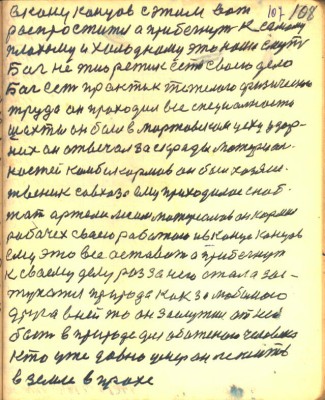 107 108
в кону концов с этим вот
распростится а прибегнут к самому
плохому и холодному это нам смутн
Бог не тио ретик есть своего дело
Бог ест практик тяжолого физическо
труда он проходил все специальности
шахты он был в мартовском цеху удар-
ник он отвечал за склады материал-
ностей комбикормов он был хозяй-
твеник совхоза ему приходилос снаб-
жат артели лесом материалов он кормил
рабочех своего работаю и в конце концов
ему это все оставит а прибегнут
к своему делу раз за него стала зас-
тужатся природа как за любимого
друга в ней то он заслужил от неё
быт в природе для обиженого человека
кто уже давно умер он лежить
в земле в прахе